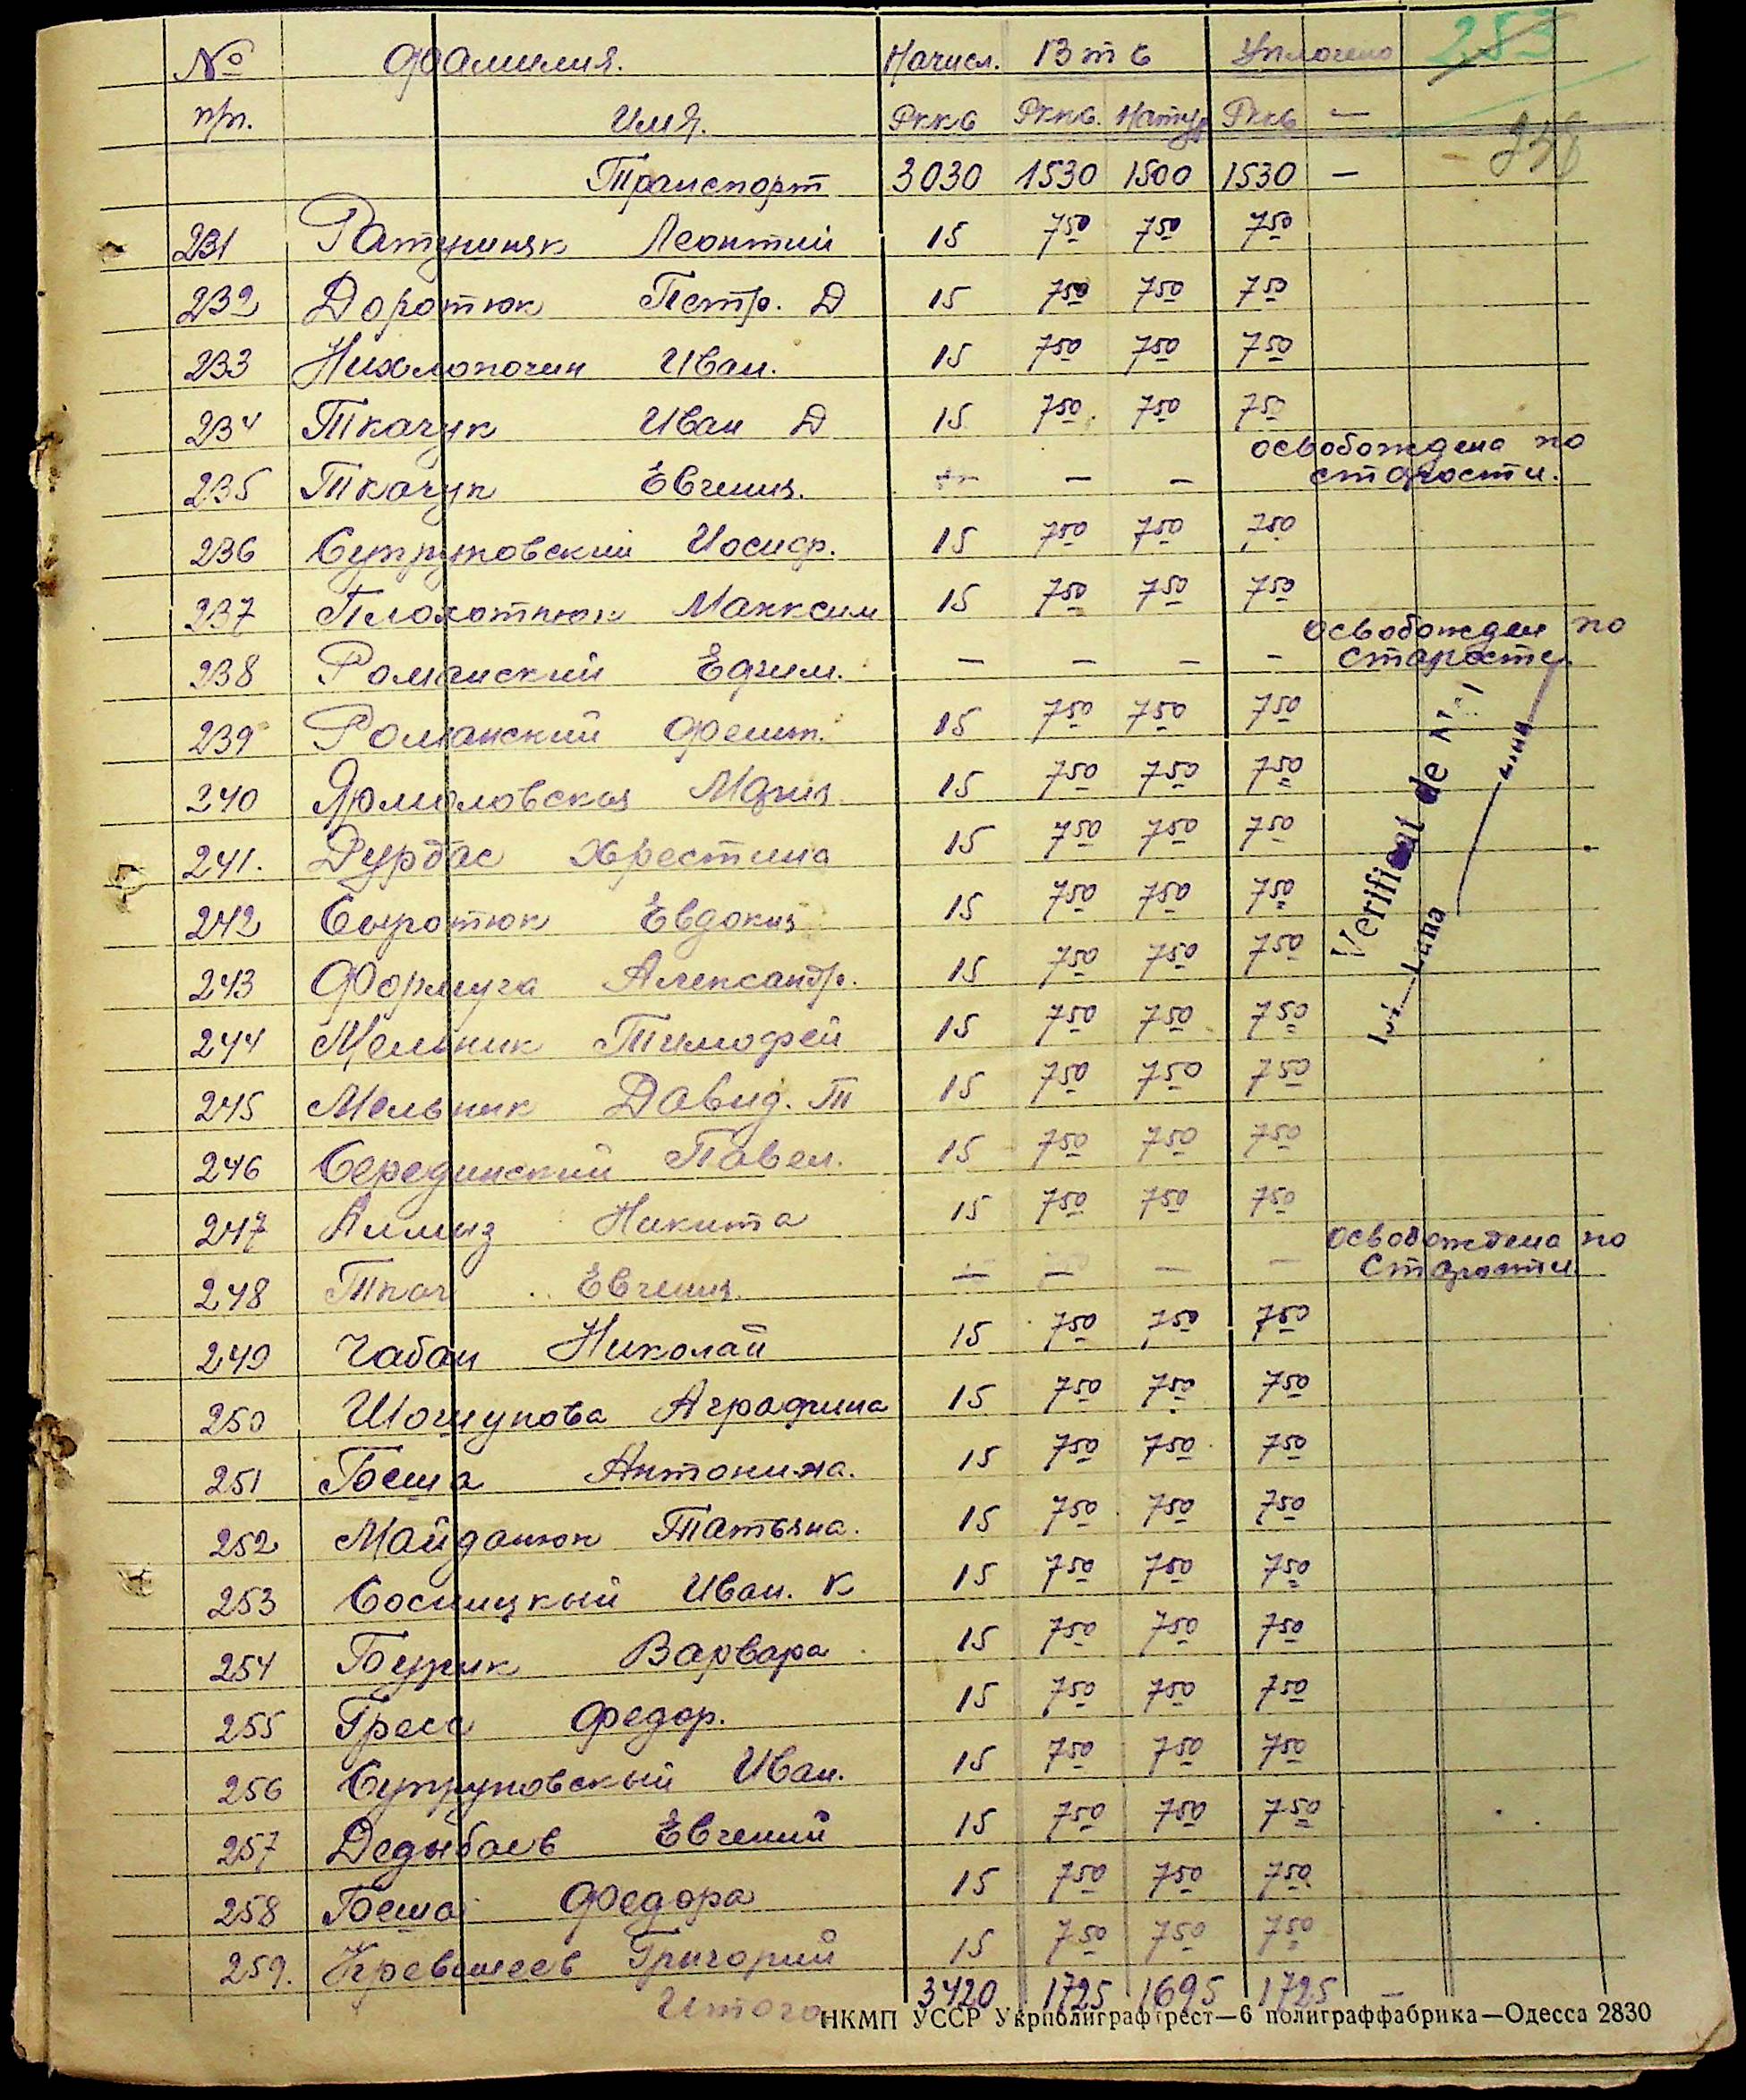 № Фамилия. Начисл. В т ч Уплочено 253
п/п. Имя. Рккв Рккв. Натур Рккв —
Транспорт 3030 1530 1500 1530 —
231 Ратушняк Леонтий 15 7 50 7 50 7 50
232 Доротюк Петр. Д 15 7 50 7 50 7 50
233 Нихлопочин Иван. 15 7 50 7 50 7 50
234 Ткачук Иван Д 15 7 50 7 50 7 50
освобождена по
235 Ткачук Евгения. — — — старости.
236 Супруновский Иосиф. 15 7 50 7 50 7 50
237 Плохотнюк Макксим 15 7 50 7 50 7 50
освобожден по
238 Романский Ефим. — — — — старости.
239 Романский Фелит. 15 7 50 7 50 7 50
240 Ярмоловская Мария 15 7 50 7 50 7 50
241. Дурбас Хрестина 15 7 50 7 50 7 50
242 Сыротюк Евдокия 15 7 50 7 50 7 50
243 Формуга Александр. 15 7 50 7 50 7 50
244 Мельник Тимофей 15 7 50 7 50 7 50
245 Мельник Давид. Т 15 7 50 7 50 7 50
246 Серединский Павел. 15 7 50 7 50 7 50
247 Никита 15 7 50 7 50 7 50
освобождена по
248 Ткач Евгения. — — — — старости
249 Чабан Николай 15 7 50 7 50 7 50
250 Шошукова Аграфина 15 7 50 7 50 7 50
251 Беша Антонина. 15 7 50 7 50 7 50
252 Майданюк Татьяна. 15 7 50 7 50 7 50
253 Сосницкый Иван. К 15 7 50 7 50 7 50
254 Бурик Варвара 15 7 50 7 50 7 50
255 Греса Федор. 15 7 50 7 50 7 50
256 Супруновскый Иван. 15 7 50 7 50 7 50
257 Дедыбаев Евгений 15 7 50 7 50 7 50
258 Беша Федора 15 7 50 7 50 7 50
259. Кревшеев Григорий 15 7 50 7 50 7 50
Итого 3420 1725 1695 1725 —
НКМП УССР Укрполиграфтрест—6 полиграффабрика—Одесса 2830
Verificat de
Luna